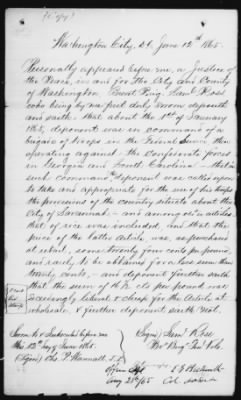 (Copy)
Washington City, D.C. June 12th 1865.
Personally appeared before me, a Justice of
the Peace, in and for the City and County
of Washington, Brevt Brig. Genl Ross
who being by me first duly sworn deposeth
and saith that about the 1st of January
1865, deponent was in command of a
brigade of troops in the Federal Service then
operating against the Confederate forces
in Georgia and South Carolina
such command deponent was called upon
to take and appropriate for the use of his troops
the provisions of the country situate about the
City of Savannah and among other articles
that of rice was included, and that the
price of the latter article was, as purchased
at retail, some twenty four cents per pound,
and rarely to be obtained for a less sum than
twenty cents, and deponent further saith
that the sum of cts per pound was
exceedingly liberal & cheap for the article at
wholesale, & further deponent saith not.
Sworn to & Subscribed before me
this 12th day of June 1865.
(Signed) Chs. P. Wannall J.P.
(Signed) Saml Ross
Bv Brig Genl Vols.
Aug 21st/65